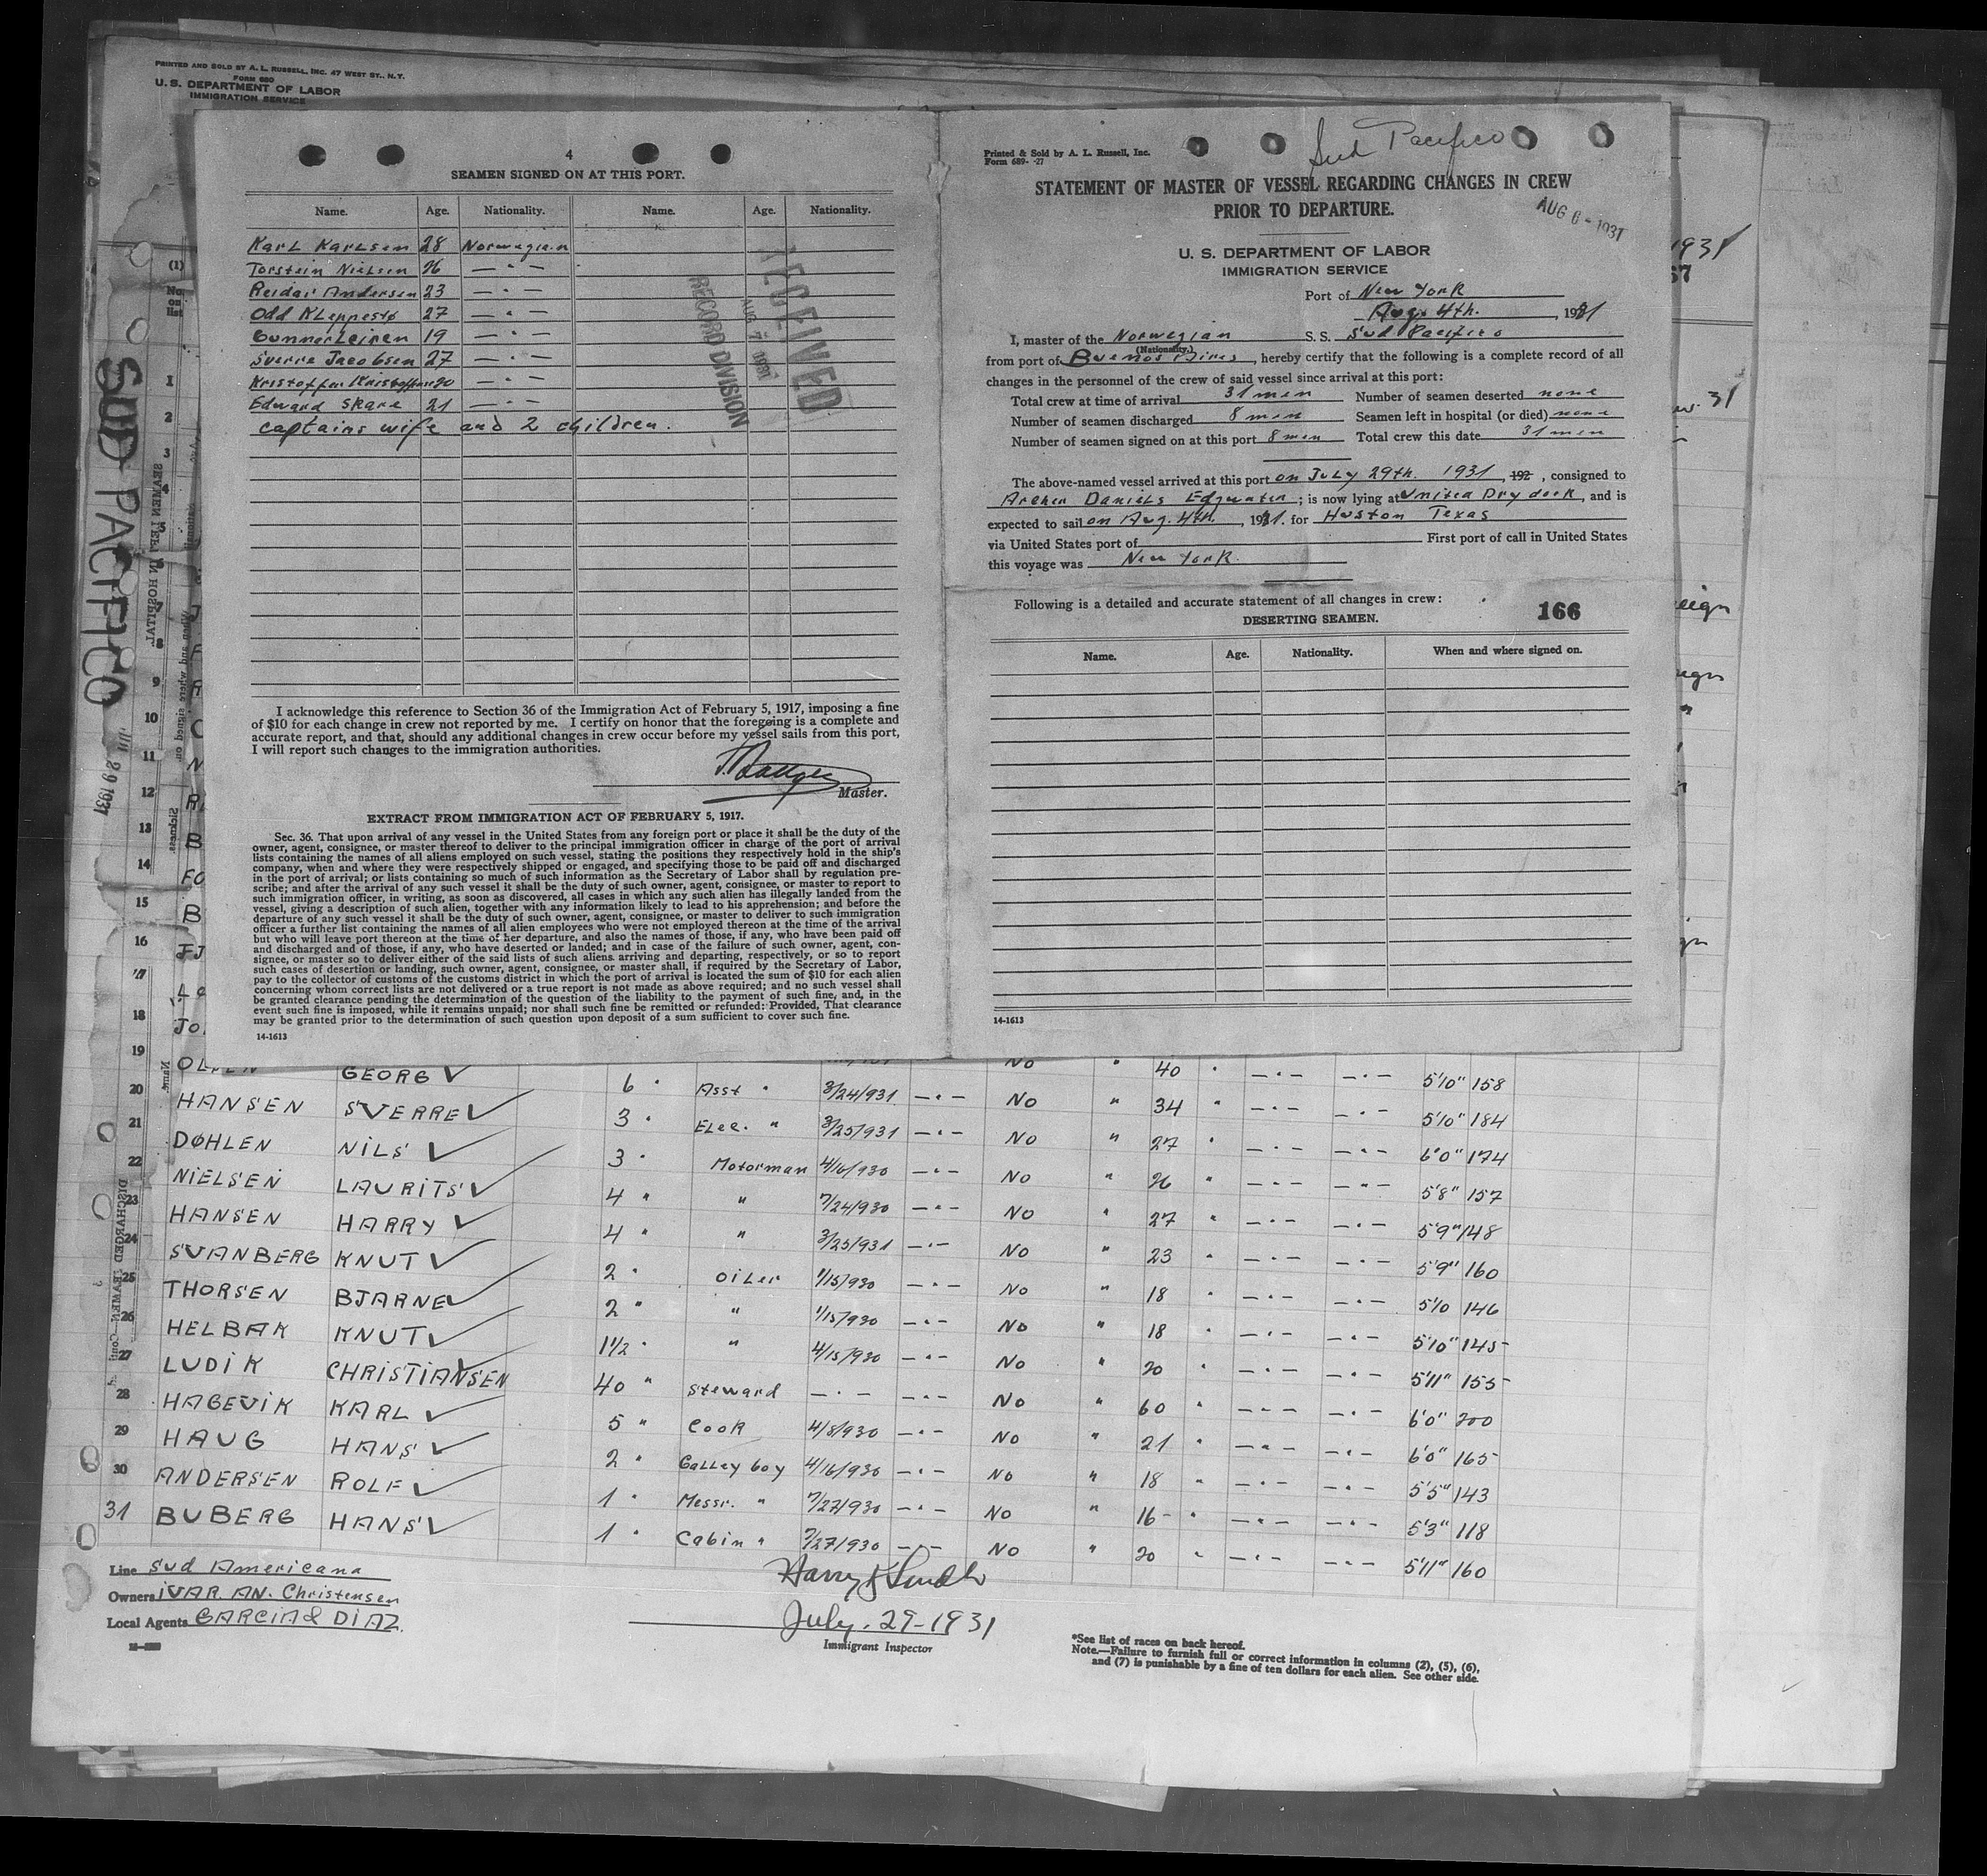 PRINTED AND SOLD BY A. L. RUSSELL, INC. 47 WEST ST., N.Y.
FORM 680
U. S. DEPARTMENT OF LABOR
IMMIGRATION SERVICE
4
SEAMEN SIGNED ON AT THIS PORT.
Name. Age. Nationality. Name. Age. Nationality.
Karl Karlsen 28 Norwegian
Torstein Nielsen 26 — " —
Reidar Andersen 23 — " —
Odd Kleppestø 27 — " —
Gunnar Leiren 19 — " —
Sverre Jacobsen 27 — " —
Kristoffer Kristoffersen 20 — " —
Edward Skare 21 — " —
captains wife and 2 children.
RECEIVED
AUG 7 1931
RECORD DIVISION
I acknowledge this reference to Section 36 of the Immigration Act of February 5, 1917, imposing a fine
of $10 for each change in crew not reported by me. I certify on honor that the foregoing is a complete and
accurate report, and that, should any additional changes in crew occur before my vessel sails from this port,
I will report such changes to the immigration authorities.
Master.
EXTRACT FROM IMMIGRATION ACT OF FEBRUARY 5, 1917.
Sec. 36. That upon arrival of any vessel in the United States from any foreign port or place it shall be the duty of the
owner, agent, consignee, or master thereof to deliver to the principal immigration officer in charge of the port of arrival
lists containing the names of all aliens employed on such vessel, stating the positions they respectively hold in the ship's
company, when and where they were respectively shipped or engaged, and specifying those to be paid off and discharged
in the port of arrival; or lists containing so much of such information as the Secretary of Labor shall by regulation pre-
scribe; and after the arrival of any such vessel it shall be the duty of such owner, agent, consignee, or master to report to
such immigration officer, in writing, as soon as discovered, all cases in which any such alien has illegally landed from the
vessel, giving a description of such alien, together with any information likely to lead to his apprehension; and before the
departure of any such vessel it shall be the duty of such owner, agent, consignee, or master to deliver to such immigration
officer a further list containing the names of all alien employees who were not employed thereon at the time of the arrival
but who will leave port thereon at the time of her departure, and also the names of those, if any, who have been paid off
and discharged and of those, if any, who have deserted or landed; and in case of the failure of such owner, agent, con-
signee, or master so to deliver either of the said lists of such aliens arriving and departing, respectively, or so to report
such cases of desertion or landing, such owner, agent, consignee, or master shall, if required by the Secretary of Labor,
pay to the collector of customs of the customs district in which the port of arrival is located the sum of $10 for each alien
concerning whom correct lists are not delivered or a true report is not made as above required; and no such vessel shall
be granted clearance pending the determination of the question of the liability to the payment of such fine, and, in the
event such fine is imposed, while it remains unpaid; nor shall such fine be remitted or refunded: Provided, That clearance
may be granted prior to the determination of such question upon deposit of a sum sufficient to cover such fine.
14-1613
Printed & Sold by A. L. Russell, Inc.
Form 689- -27
Sud Pacifico
STATEMENT OF MASTER OF VESSEL REGARDING CHANGES IN CREW
PRIOR TO DEPARTURE.
AUG 6 - 1931
U. S. DEPARTMENT OF LABOR
IMMIGRATION SERVICE
Port of New York
Aug. 4th. , 1931
I, master of the Norwegian S. S. Sud Pacifico
(Nationality.)
from port of Buenos Aires , hereby certify that the following is a complete record of all
changes in the personnel of the crew of said vessel since arrival at this port:
Total crew at time of arrival 31 men Number of seamen deserted none
Number of seamen discharged 8 men Seamen left in hospital (or died) none
Number of seamen signed on at this port 8 men Total crew this date 31 men
The above-named vessel arrived at this port on July 29th. 1931 , 192 , consigned to
Archer Daniels Edgewater ; is now lying at United Dry dock , and is
expected to sail on Aug. 4th. , 1931. for Huston Texas
via United States port of First port of call in United States
this voyage was New York.
Following is a detailed and accurate statement of all changes in crew:
166
DESERTING SEAMEN.
Name. Age. Nationality. When and where signed on.
14-1613
SUD PACIFICO
JUL 29 1931
SEAMEN LEFT IN HOSPITAL
(1)
No. on list
1
2
3
4
5
6
7
8
9
10
11
12
13
14
15
16
17
18
19 GEORG 6 " Asst " 3/24/931 — " — No " 40 " — " — — " — 5'10" 158
20 HANSEN SVERRE 3 " Elec. " 3/25/931 — " — No " 34 " — " — — " — 5'10" 184
21 DØHLEN NILS 3 " Motorman 4/16/930 — " — No " 27 " — " — — " — 6'0" 174
22 NIELSEN LAURITS 4 " " 7/24/930 — " — No " 26 " — " — — " — 5'8" 157
23 HANSEN HARRY 4 " " 3/25/931 — " — No " 27 " — " — — " — 5'9" 148
24 SVANBERG KNUT 2 " Oiler 1/15/930 — " — No " 23 " — " — — " — 5'9" 160
25 THORSEN BJARNE 2 " " 1/15/930 — " — No " 18 " — " — — " — 5'10 146
26 HELBAK KNUT 1½ " " 4/15/930 — " — No " 18 " — " — — " — 5'10" 145
27 LUDIK CHRISTIANSEN 40 " Steward — " — — " — No " 20 " — " — — " — 5'11" 155
28 HAGEVIK KARL 5 " Cook 4/8/930 — " — No " 60 " — " — — " — 6'0" 200
29 HAUG HANS 2 " Galley boy 4/16/930 — " — No " 21 " — " — — " — 6'0" 165
30 ANDERSEN ROLF 1 " Messr. " 7/27/930 — " — No " 18 " — " — — " — 5'5" 143
31 BUBERG HANS 1 " Cabin " 7/27/930 — " — No " 16 " — " — — " — 5'3" 118
No " 20 " — " — — " — 5'11" 160
Line Sud Americana
Owners IVAR. AN. Christensen
Local Agents GARCIA & DIAZ.
July. 29-1931
Immigrant Inspector
*See list of races on back hereof.
Note.—Failure to furnish full or correct information in columns (2), (5), (6),
and (7) is punishable by a fine of ten dollars for each alien. See other side.